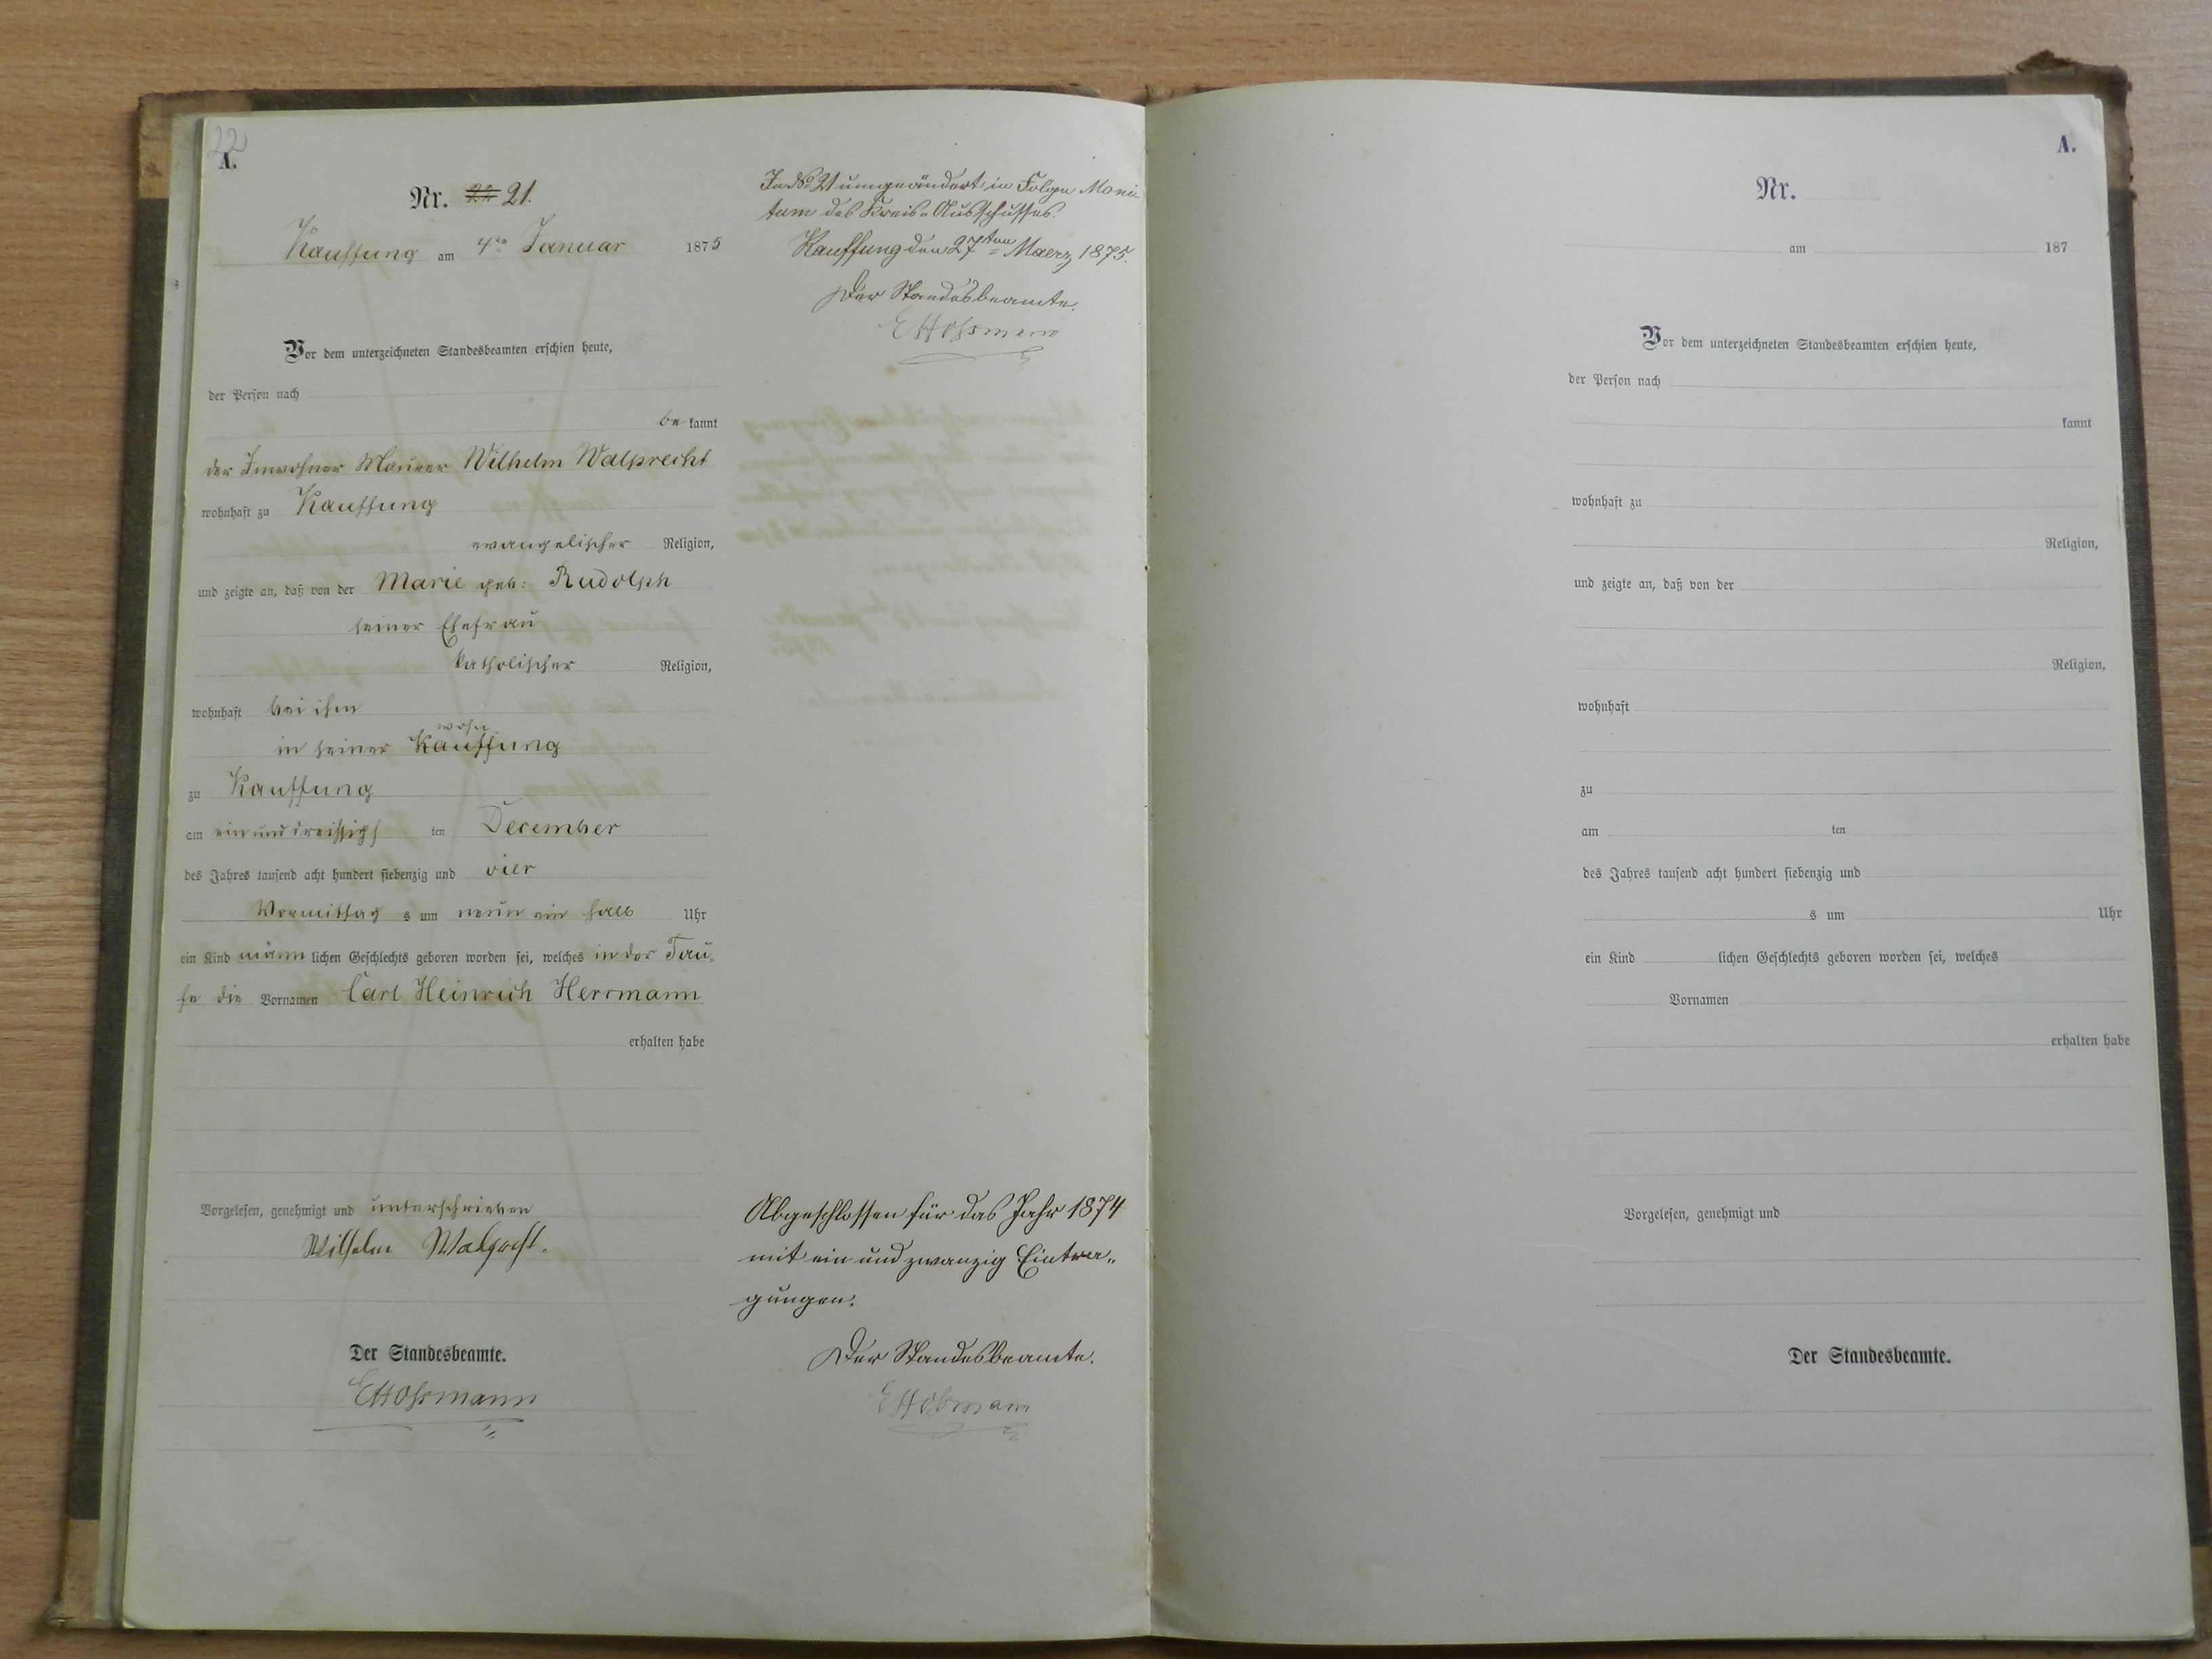 22
A.
Nr. 22 21.
Kauffung am 4ten Januar 1875
Vor dem unterzeichneten Standesbeamten erschien heute,
der Person nach
be kannt
der Inwohner Maurer Wilhelm Walprecht
wohnhaft zu Kauffung
evangelischer Religion,
und zeigte an, daß von der Marie geb: Rudolph
seiner Ehefrau
katholischer Religion,
wohnhaft bei ihm
wohn
in seiner Kauffung
zu Kauffung
am ein und dreissigs ten December
des Jahres tausend acht hundert siebenzig und vier
Vormittag s um neun ein halb Uhr
ein Kind männ lichen Geschlechts geboren worden sei, welches in der Tau-
fe die Vornamen Carl Heinrich Herrmann.
erhalten habe
Vorgelesen, genehmigt und unterschrieben
Wilhelm Walprecht.
Der Standesbeamte.
In No 21 umgeändert in Folge Moni-
tum des Kreis-Ausschusses.
Kauffung den 27ten Maerz 1875.
Der Standesbeamte.
Abgeschlossen für das Jahr 1874
mit ein und zwanzig Eintra-
gungen.
Der Standesbeamte.
A.
Nr.
am 187
Vor dem unterzeichneten Standesbeamten erschien heute,
der Person nach
kannt
wohnhaft zu
Religion,
und zeigte an, daß von der
Religion,
wohnhaft
zu
am ten
des Jahres tausend acht hundert siebenzig und
s um Uhr
ein Kind lichen Geschlechts geboren worden sei, welches
Vornamen
erhalten habe
Vorgelesen, genehmigt und
Der Standesbeamte.